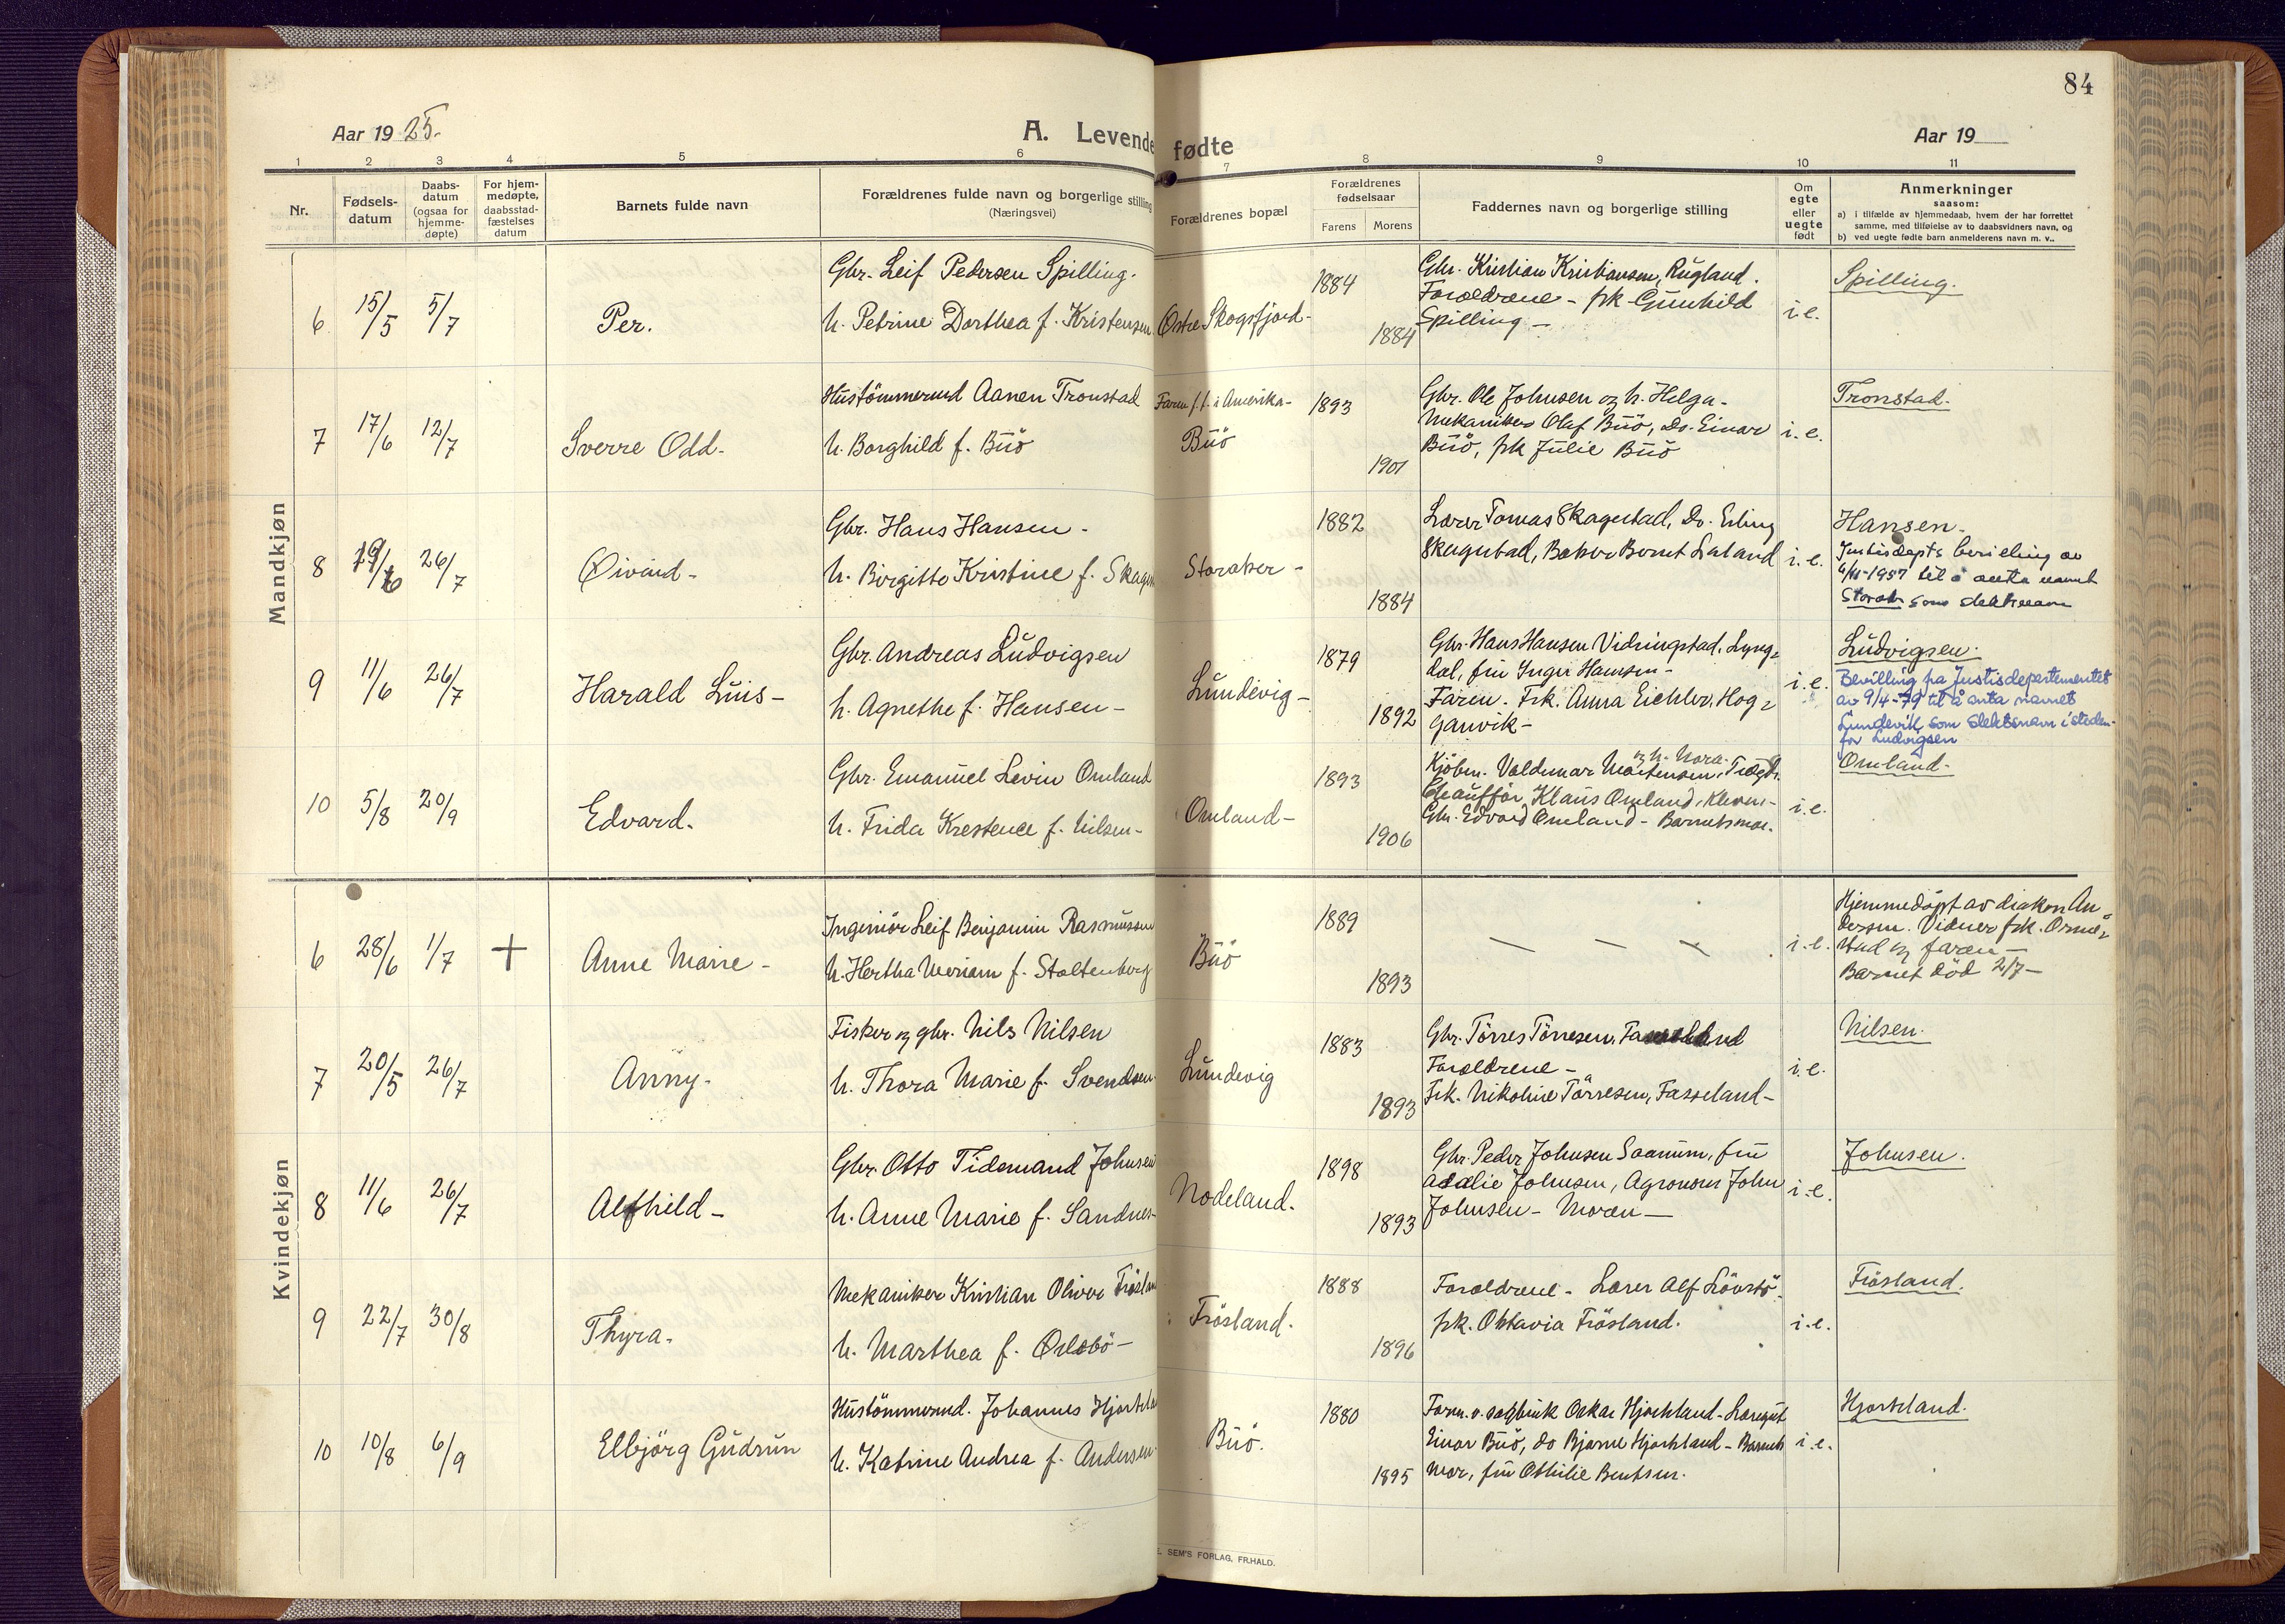 84
Aar 1925.
A. Levende fødte
Aar 19
1 2 3 4 5 6 7 8 9 10 11
Nr.
Fødsels-
datum
Daabs-
datum
(ogsaa for
hjemme-
døpte)
For hjem-
medøpte,
daabsstad-
fæstelses
datum
Barnets fulde navn
Forældrenes fulde navn og borgerlige stilling
(Næringsvei)
Forældrenes bopæl
Forældrenes
fødselsaar
Farens Morens
Faddernes navn og borgerlige stilling
Om
egte
eller
uegte
født
Anmerkninger
saasom:
a) i tilfælde av hjemmedaab, hvem der har forrettet
samme, med tilføielse av to daabsvidners navn, og
b) ved uegte fødte barn anmelderens navn m. v..
Mandkjøn
6 15/5 5/7 Per.
Gbr. Leif Pedersen Spilling.
h. Petrine Dorthea f. Kristensen
Østre Skogsfjord-
1884
1884
Gbr. Kristian Kristiansen, Rugland.
Forældrene - frk Gunhild
Spilling -
i.e.
Spilling.
7 17/6 12/7 Sverre Odd-
Hustömmermd Aanen Tronstad
h. Borghild f. Büö
Faren f.t. i Amerika-
Büö
1893
1901
Gbr. Ole Johnsen og h. Helga-
Mekaniker Olaf Büö, Do. Einar
Büö, frk Julie Büö
i.e.
Tronstad.
8 19/6 26/7 Øivind-
Gbr. Hans Hansen -
h. Birgitte Kristine f. Skages
Storaker -
1882
1884
Lærer Tomas Skagestad, Do. Erling
Skagestad, Baker Bernt Laland
i.e.
Hansen-
Justisdepts bevilling av
1957 til å anta navnet
Storak som slektsnavn
9 11/6 26/7 Harald Luis-
Gbr. Andreas Ludvigsen
h. Agnethe f. Hansen-
Lundevig-
1879
1892
Gbr. Hans Hansen Vidringstad, Lyng=
dal, fru Inger Hansen-
Faren. Frk. Anna Eichler, Hog=
ganvik-
i.e.
Ludvigsen.
Bevilling fra Justisdepartementet
av 9/4-79 til å anta navnet
Lundevik som slektsnavn i steden-
for Ludvigsen
10 5/8 20/9 Edvard.
Gbr. Emanuel Levin Omland
h. Frida Krestence f. Nilsen-
Omland-
1893
1906
og h. Nora
Kjöbm. Valdemar Mortensen,
Chaufför Klaus Omland, Kleven-
Gbr. Edvard Omland - Barnets mor.
i.e.
Omland-
Kvindekjøn
6 28/6 1/7 + Anne Marie -
Ingeniör Leif Benjamin Rasmussen
h. Hertha Meriam f. Stoltenberg
Büö
1889
1893
— — —
i.e.
Hjemmedöpt av diakon An=
dersen. Vidner frk. Orme=
stad og faren -
Barnet död 2/7-
7 20/5 26/7 Anny.
Fisker og gbr. Nils Nilsen
h. Thora Marie f. Svendsen
Lundevig
1883
1893
Gbr. Törres Törresen,
Forældrene -
Frk. Nikoline Törresen, Fasseland-
i.e.
Nilsen.
8 11/6 26/7 Alfhild-
Gbr. Otto Tidemand Johnsen
h. Anne Marie f. Sandnes-
Nodeland.
1898
1893
Gbr. Peder Johnsen Saanum, fru
Adalie Johnsen, Agronom John
Johnsen - Moren -
i.e.
Johnsen.
9 22/7 30/8 Thyra.
Mekaniker Kristian Oliver Frösland
h. Marthea f. Oslobö-
Frösland.
1888
1896
Forældrene - Lærer Alf Lövstö-
frk. Oktavia Frösland.
i.e.
Frösland.
10 10/8 6/9 Elbjörg Gudrun
Hustömmermd. Johannes Hjorteland
h. Katrine Andrea f. Andersen
Büö.
1880
1895
Form. v. sagbruk Oskar Hjorteland - Læregut
Einar Büö, do Bjarne Hjorteland - Barnets
mor, fru Othilie Bentsen.
i.e.
Hjorteland.
E. SEM'S FORLAG, FR.HALD.